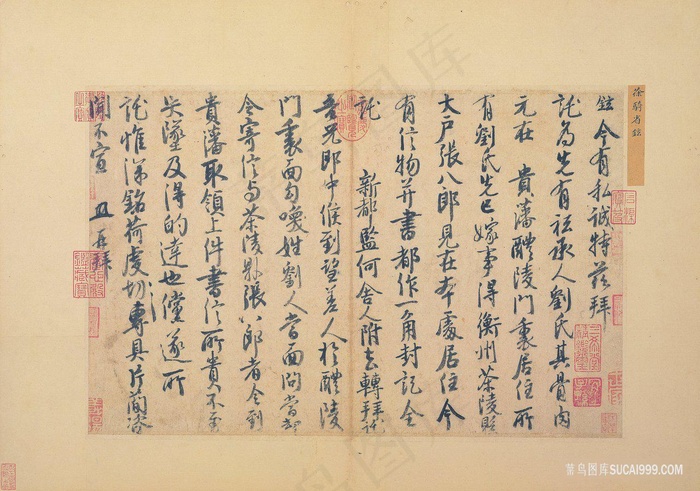 徐騎省鉉
鉉今有私誠特茲拜
託為先有祗承人劉氏其骨肉
元在 貴藩醴陵門裏居住所
有劉氏先已嫁事得衡州茶陵縣
大戶張八郎見在本處居住今
有信物并書都作一角封記全
託 新都監何舍人附去轉拜託
吾兄郎中候到望差人於醴陵
門裏面勾喚姓劉人當面問當却
令寄信與茶陵縣張八郎者令到
貴藩取領上件書信所貴不至
失墜及得的達也儻遂所
託惟深銘荷虔切專具片簡咨
聞不宣 且再拜
菜鸟图库SUCAI999.COM